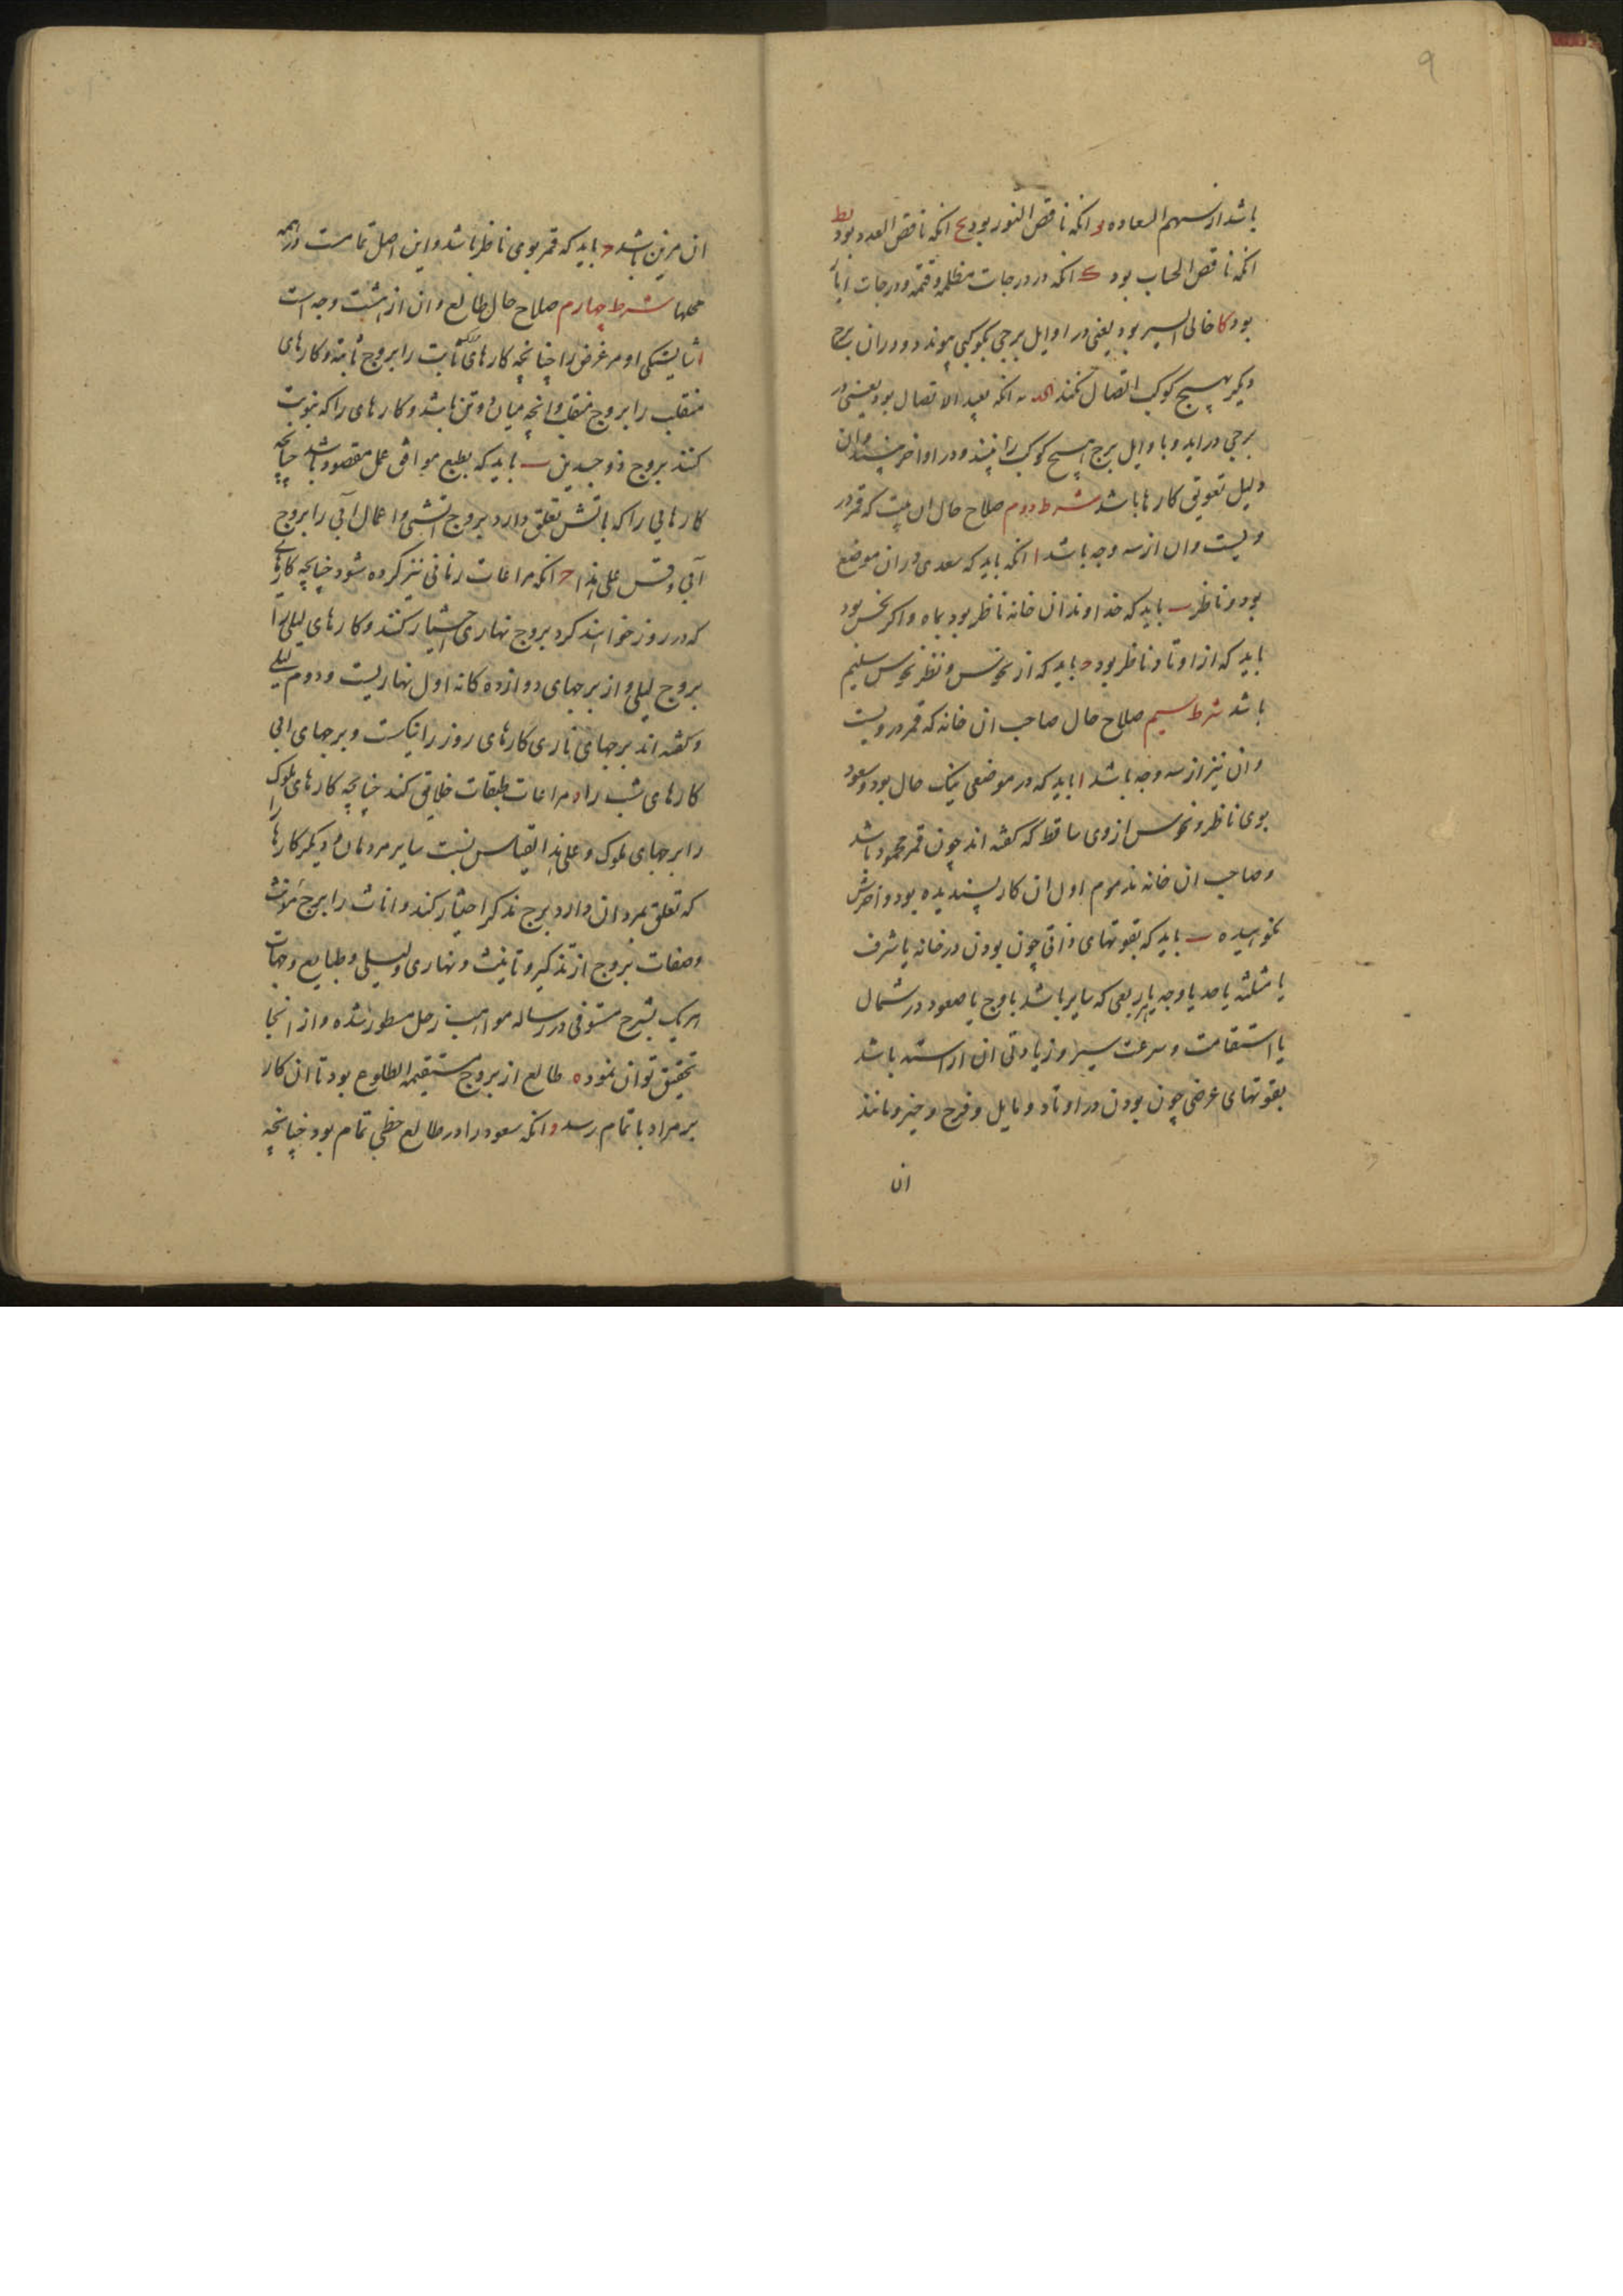 ۹
باشد از سهم السعاده یز انکه ناقص النور بود یح انکه ناقص العدد بود یط
انکه ناقص الحساب بود ک انکه در درجات مظلمه و قتمه و درجات ابار
بود کا خالی السیر بود یعنی در اوایل برجی بکوکبی پیوندد و در ان برج
دیگر بهیچ کوکب اتصال نکند انکه بعید الاتصال بود یعنی در
برجی دراید و باوایل برج هیچ کوکب را نبیند و در اواخر بیند و ان
دلیل تعویق کارها باشد شرط دوم صلاح حال ان بیت که قمر در
ویست و ان از سه وجه باشد ا انکه باید که سعدی در ان موضع
بود و ناظر ب باید که خداوند ان خانه ناظر بود بماه و اکر نحس بود
باید که از اوتاد ناظر بود ج باید که از نحوس و نظر نحوس سلیم
باشد شرط سیم صلاح حال صاحب ان خانه که قمر در ویست
و ان نیز از سه وجه باشد ا باید که در موضعی نیک حال بود و سعود
بوی ناظر و نحوس از وی ساقط که کفته اند چون قمر محمود باشد
و صاحب ان خانه مذموم اول ان کار پسندیده بود و اخرش
نکوهیده ب باید که بقوتهای ذاتی چون بودن در خانه یا شرف
یا مثلثه یا حد یا وجه یا ربعی که سایر باشد باوج یا صعود در شمال
یا استقامت و سرعت سیر و زیادتی ان اراسته باشد
بقوتهای عرضی چون بودن در اوتاد و مایل و فرح و حیز و مانند
ان
ان مزین باشد ج باید که قمر بوی ناظر باشد و این اصل تمامست در همه
محلها شرط چهارم صلاح حال طالع و ان از هشت وجه است
ا شایستکی او مر غرض را چنانچه کارهای ثابت را بروج ثابته و کارهای
منقلب را بروج منقلب و انچه میان دو فن باشد و کارهای را که بنوبت
کنند بروج ذوجسدین ب باید که بطبع موافق عمل مقصود باشد چنانچه
کارهایی را که باتش تعلق دارد بروج اتشی و اعمال آبی را بروج
آبی و قس علی هذا ج انکه مراعات زمانی نیز کرده شود چنانچه کارهای
که در روز خواهند کرد بروج نهاری اختیار کنند و کارهای لیلی را
بروج لیلی و از برجهای دوازده کانه اول نهاریست و دوم لیلی
و کفته اند برجهای ناری کارهای روز را نیکست و برجهای ابی
کارهای شب را د مراعات طبقات خلایق کند چنانچه کارهای ملوک را
را برجهای ملوک و علی هذا القیاس نسبت سایر مردمان و دیکر کارها
که تعلق بمردان دارد برج مذکر اختیار کند و اناث را برج مؤنث
و صفات بروج از تذکیر و تانیث و نهاری و لیلی و طبایع و جهات
هریک بشرح مستوفی در رساله مواهب زحل مسطور شده و از انجا
تحقیق توان نمود ه طالع از بروج مستقیمه الطلوع بود تا ان کار
بر مراد باتمام رسد و انکه سعود را در طالع حظی تمام بود چنانچه